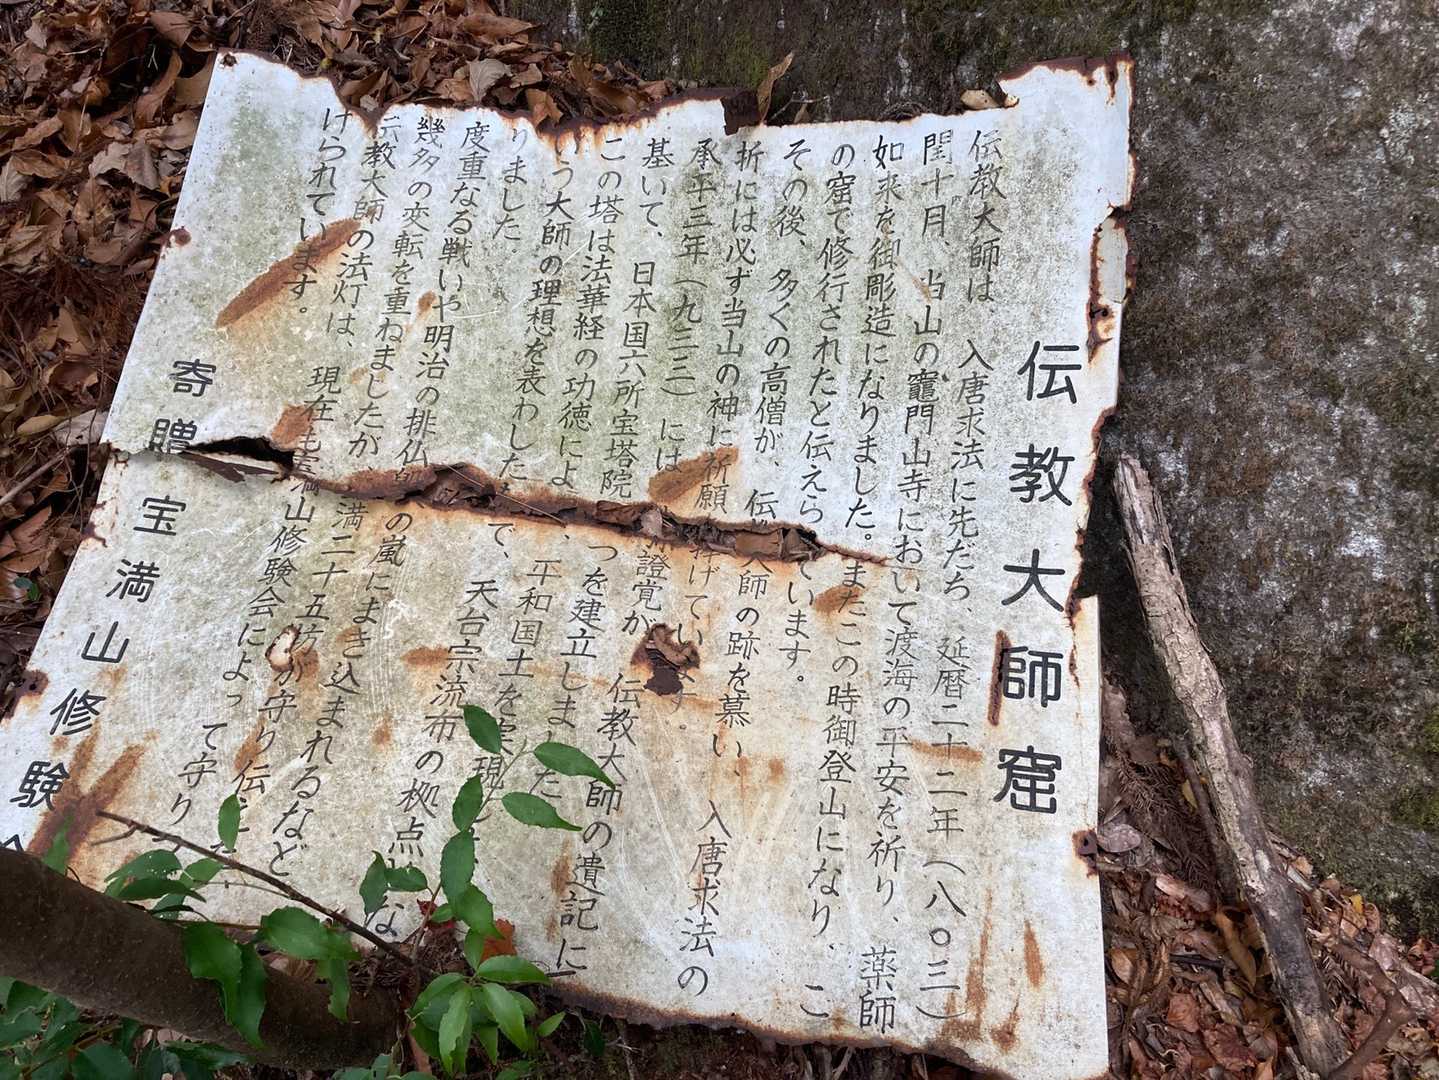 伝教大師窟
伝教大師は、入唐求法に先だち 延暦二十二年(八〇三)
閏十月、当山の竈門山寺において渡海の平安を祈り、薬師
如来を御彫造になりました。またこの時御登山になり、こ
の窟で修行されたと伝えら ています。
その後、多くの高僧が、伝 大師の跡を慕い、入唐求法の
折には必ず当山の神に祈願 げています。
承平三年(九三三)には 證覚が 伝教大師の遺記に
基いて、日本国六所宝塔院 つを建立しました
この塔は法華経の功徳によ 、平和国土を実現
いう大師の理想を表わした で、天台宗流布の拠点 な
りました
度重なる戦いや明治の排仏 の嵐にまき込まれるなど
幾多の変転を重ねましたが、 満二十五坊が守り伝え
伝教大師の法灯は、現在も 満山修験会によって守り
けられています。
寄贈 宝満山修験